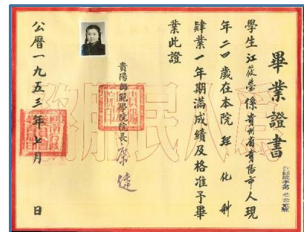 畢業證書
學生江筱雲係貴州省貴陽市人現
年二四歲在本院理化科
肄業一年期滿成績及格准予畢
業此證
貴陽師範學院院長
公曆一九五三年七月 日
為人民服務